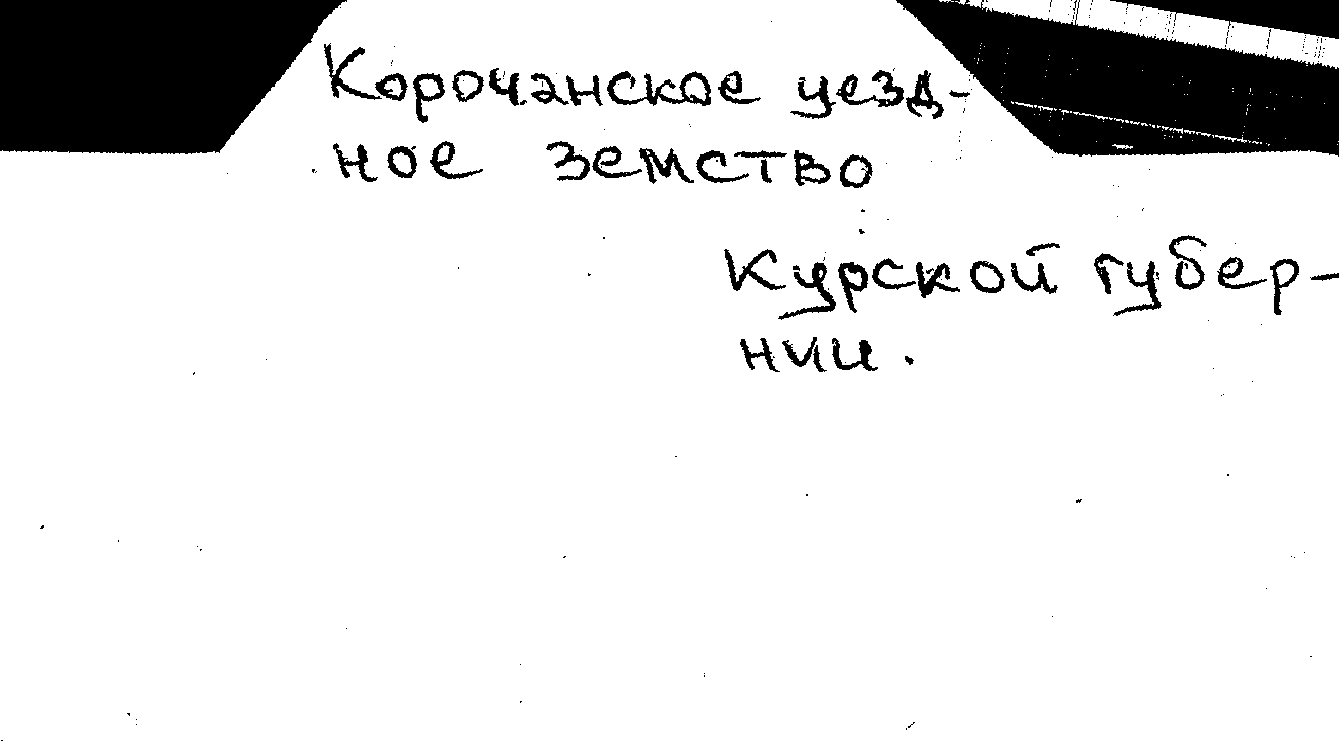 Корочанское уезд-
ное земство
Курской губер-
нии.